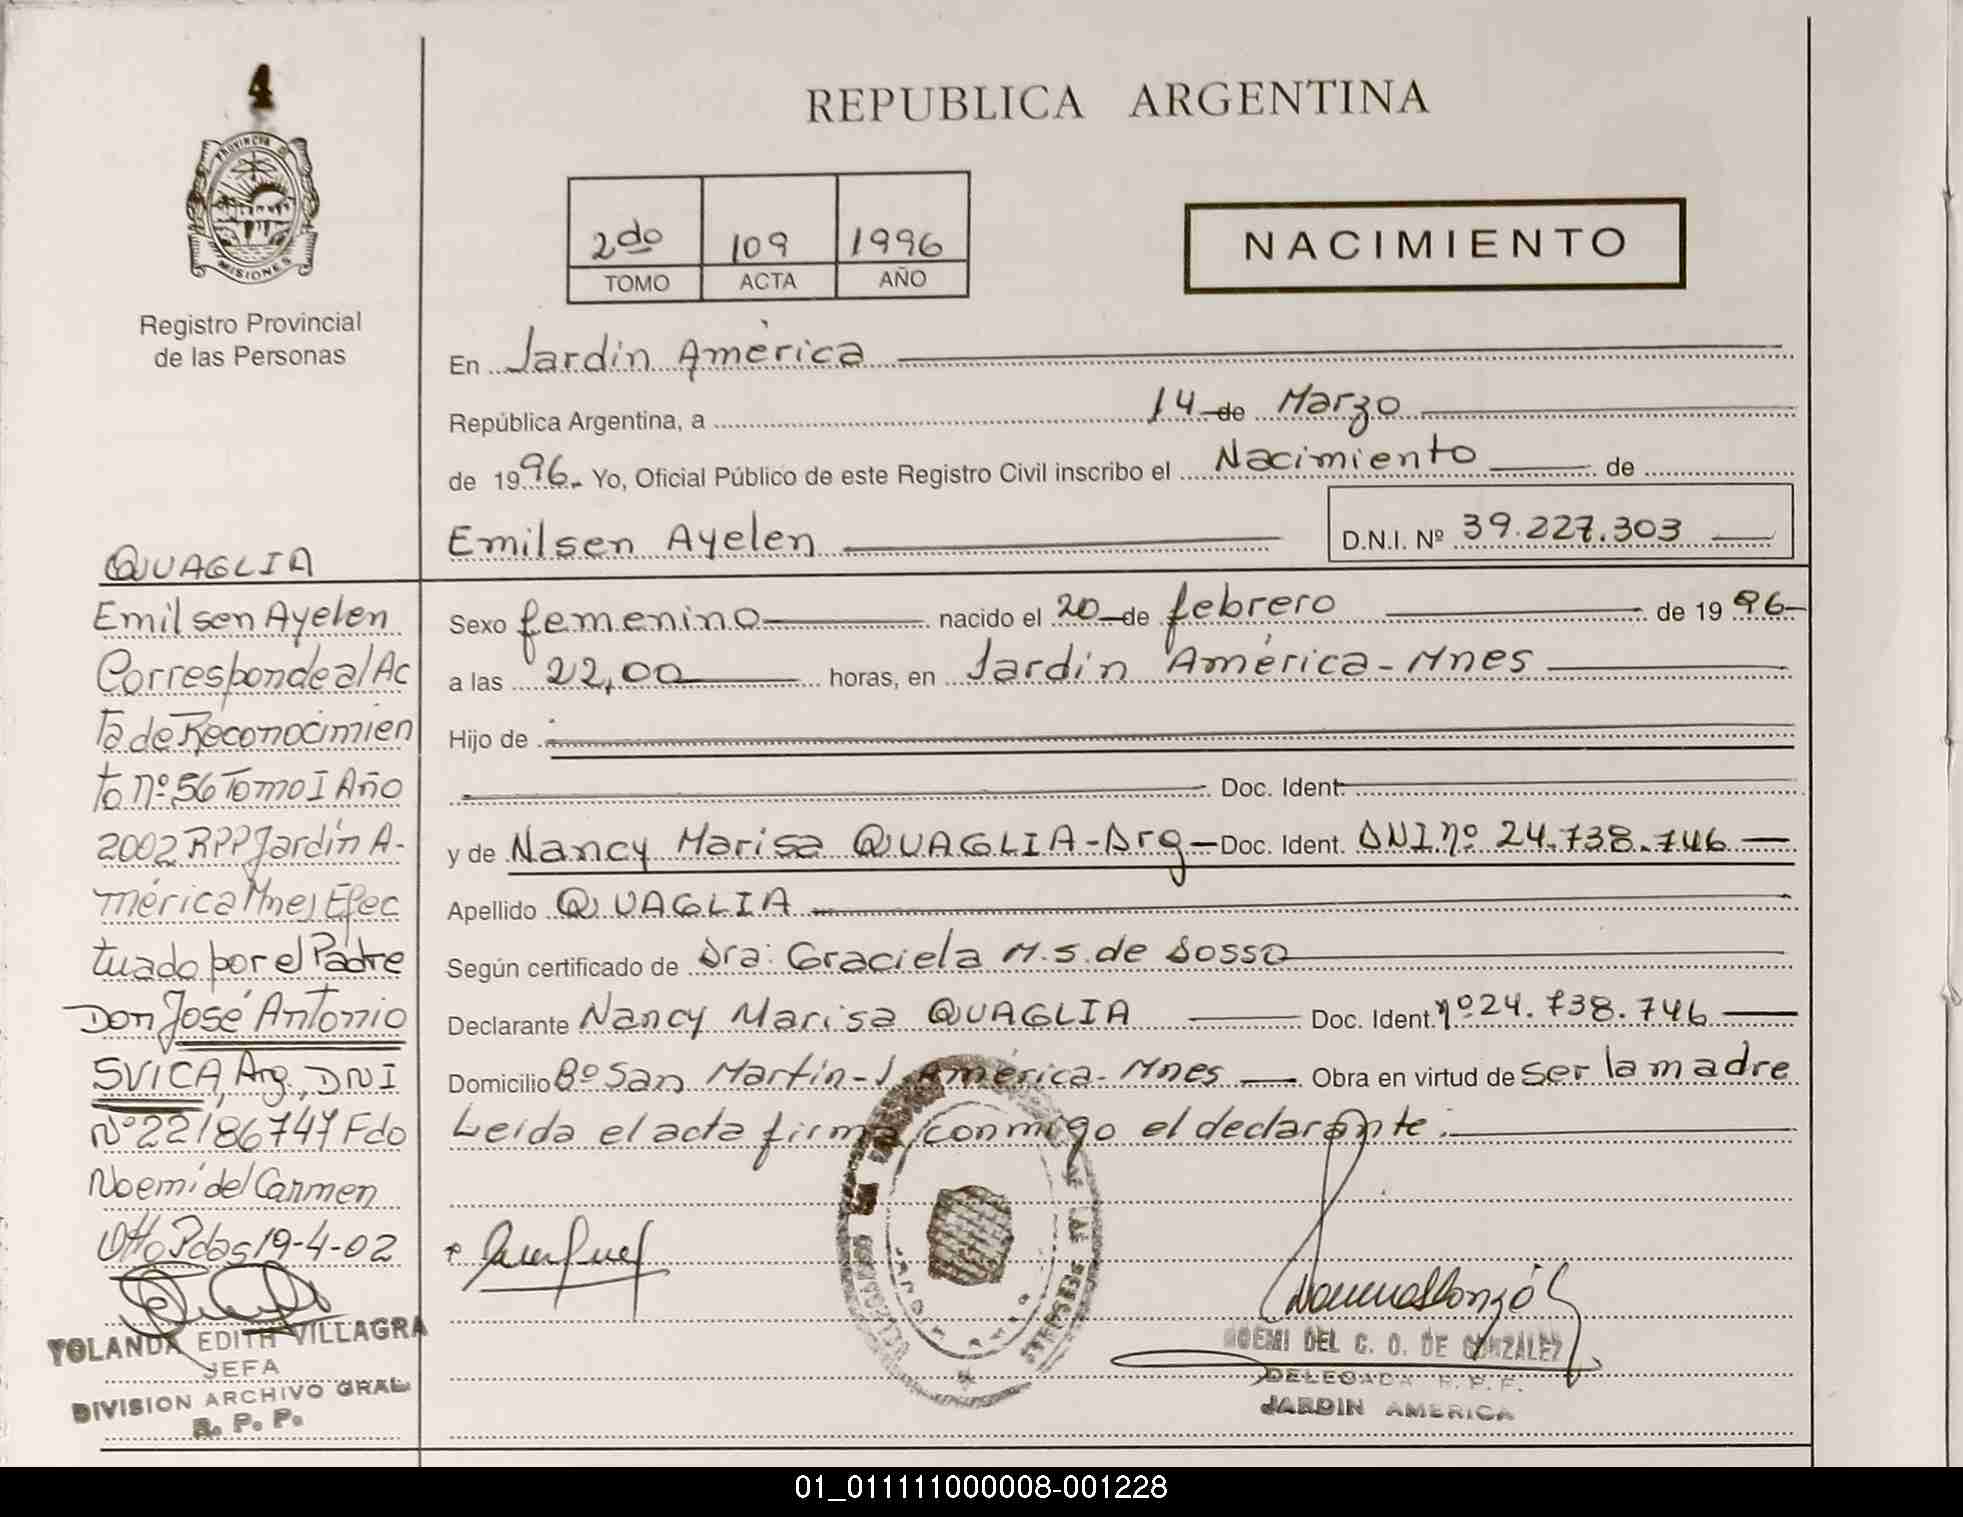 4
PROVINCIA DE
MISIONES
Registro Provincial
de las Personas
REPUBLICA ARGENTINA
2do 109 1996
TOMO ACTA AÑO
NACIMIENTO
En Jardín América
República Argentina, a 14 de Marzo
de 1996. Yo, Oficial Público de este Registro Civil inscribo el Nacimiento de
Emilsen Ayelen D.N.I. Nº 39.227.303
Sexo femenino nacido el 20 de febrero de 1996
a las 22,00 horas, en Jardín América - Mnes
Hijo de
Doc. Ident.
y de Nancy Marisa QUAGLIA - Arg - Doc. Ident. DNI nº 24.738.746
Apellido QUAGLIA
Según certificado de Dra: Graciela M.S. de Sosso
Declarante Nancy Marisa QUAGLIA Doc. Ident. nº 24.738.746
Domicilio Bº San Martín - J. América - Mnes Obra en virtud de ser la madre
Leída el acta firma conmigo el declarante.
NOEMI DEL C. O. DE GONZALEZ
DELEGADA R. P. P.
JARDIN AMERICA
QUAGLIA
Emilsen Ayelen
Corresponde al Ac
ta de Reconocimien
to nº 56 Tomo I Año
2002 RPP Jardín A-
mérica Mnes Efec
tuado por el Padre
Don José Antonio
SVICA, Arg., DNI
Nº 22186747 Fdo
Noemí del Carmen
Otto Pdas 19-4-02
YOLANDA EDITH VILLAGRA
JEFA
DIVISION ARCHIVO GRAL
R. P. P.
01_011111000008-001228